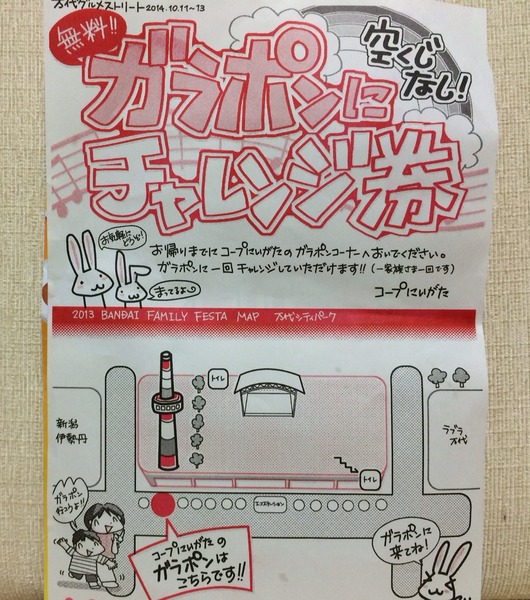 万代グルメストリート 2014.10.11~13
無料!!
空くじ
なし!
ガラポンに
チャレンジ券
お気軽に
どうぞ!
まってるよ
お帰りまでに コープにいがたの ガラポンコーナーへおいでください。
ガラポンに一回 チャレンジしていただけます!! (一家族さま一回です)
コープにいがた
2013 BANDAI FAMILY FESTA MAP 万代シティパーク
トイレ
新潟
伊勢丹
ラブラ
万代
トイレ
ガラポン
行こうよ!!
コープにいがたの
ガラポンは
こちらです!!
ガラポンに
来てね!